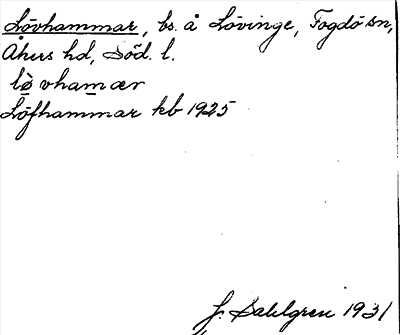 Lövhammar, bs. å Lövinge, Fogdö sn,
Åkers hd, Söd. l.
lø̀vhamær
Löfhammar kb 1925
J. Sahlgren 1931